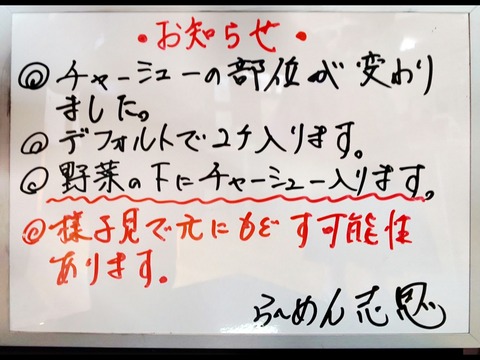 ・お知らせ・
◎チャーシューの部位が変わり
ました。
◎デフォルトで2ヶ入ります。
◎野菜の下にチャーシュー入ります。
◎様子見で元にもどす可能性
あります。
らーめん志思